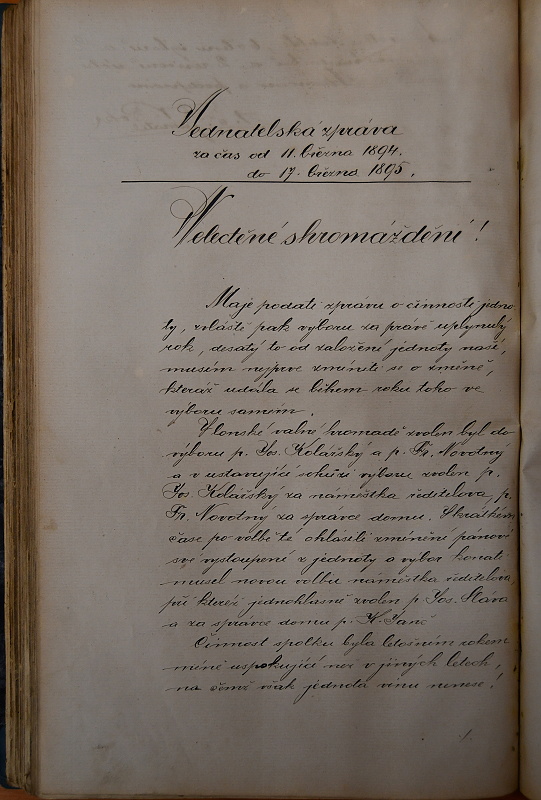 Jednatelská zpráva
za čas od 11. března 1894.
do 17. března 1895.
Veleděné shromáždění!
Maje podati zprávu o činnosti jedno-
ty, zvláště pak výboru za právě uplynulý
rok, desátý to od založení jednoty naší,
musím nejprve zmíniti se o změně,
kteráž udála se během roku toho ve
výboru samém.
V lonské valné hromadě zvolen byl do
výboru p. Jos. Kolářský a p. Fr. Novotný
a v ustavující schůzi výboru zvolen p.
Jos. Kolářský za náměstka ředitelova, p.
Fr. Novotný za správce domu. V krátkém
čase po volbě té ohlásili zmínění pánové
své vystoupení z jednoty a výbor konati
musel novou volbu náměstka ředitelova,
při kteréž jednohlasně zvolen p. Jos. Sláva
a za správce domu p. K. Janč
Činnost spolku byla letošním rokem
méně uspokující než v jiných letech,
na čemž však jednota vinu nenese!